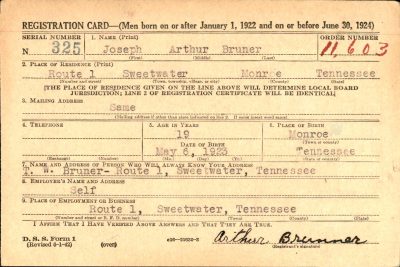 REGISTRATION CARD—(Men born on or after January 1, 1922 and on or before June 30, 1924)
SERIAL NUMBER 1. NAME (Print) ORDER NUMBER
N 325 Joseph Arthur Bruner 11,603
(First) (Middle) (Last)
2. PLACE OF RESIDENCE (Print)
Route 1 Sweetwater Monroe Tennessee
(Number and street) (Town, township, village, or city) (County) (State)
[THE PLACE OF RESIDENCE GIVEN ON THE LINE ABOVE WILL DETERMINE LOCAL BOARD
JURISDICTION; LINE 2 OF REGISTRATION CERTIFICATE WILL BE IDENTICAL]
3. MAILING ADDRESS
Same
[Mailing address if other than place indicated on line 2. If same insert word same]
4. TELEPHONE 5. AGE IN YEARS 6. PLACE OF BIRTH
19 Monroe
DATE OF BIRTH (Town or county)
May 8, 1923 Tennessee
(Exchange) (Number) (Mo.) (Day) (Yr.) (State or country)
7. NAME AND ADDRESS OF PERSON WHO WILL ALWAYS KNOW YOUR ADDRESS
T. W. Bruner- Route 1, Sweetwater, Tennessee
8. EMPLOYER'S NAME AND ADDRESS
Self
9. PLACE OF EMPLOYMENT OR BUSINESS
Route 1, Sweetwater, Tennessee
(Number and street or R. F. D. number) (Town) (County) (State)
I AFFIRM THAT I HAVE VERIFIED ABOVE ANSWERS AND THAT THEY ARE TRUE.
D. S. S. Form 1
(Revised 6-1-42) (over) Arthur Brunner
(Registrant's signature)